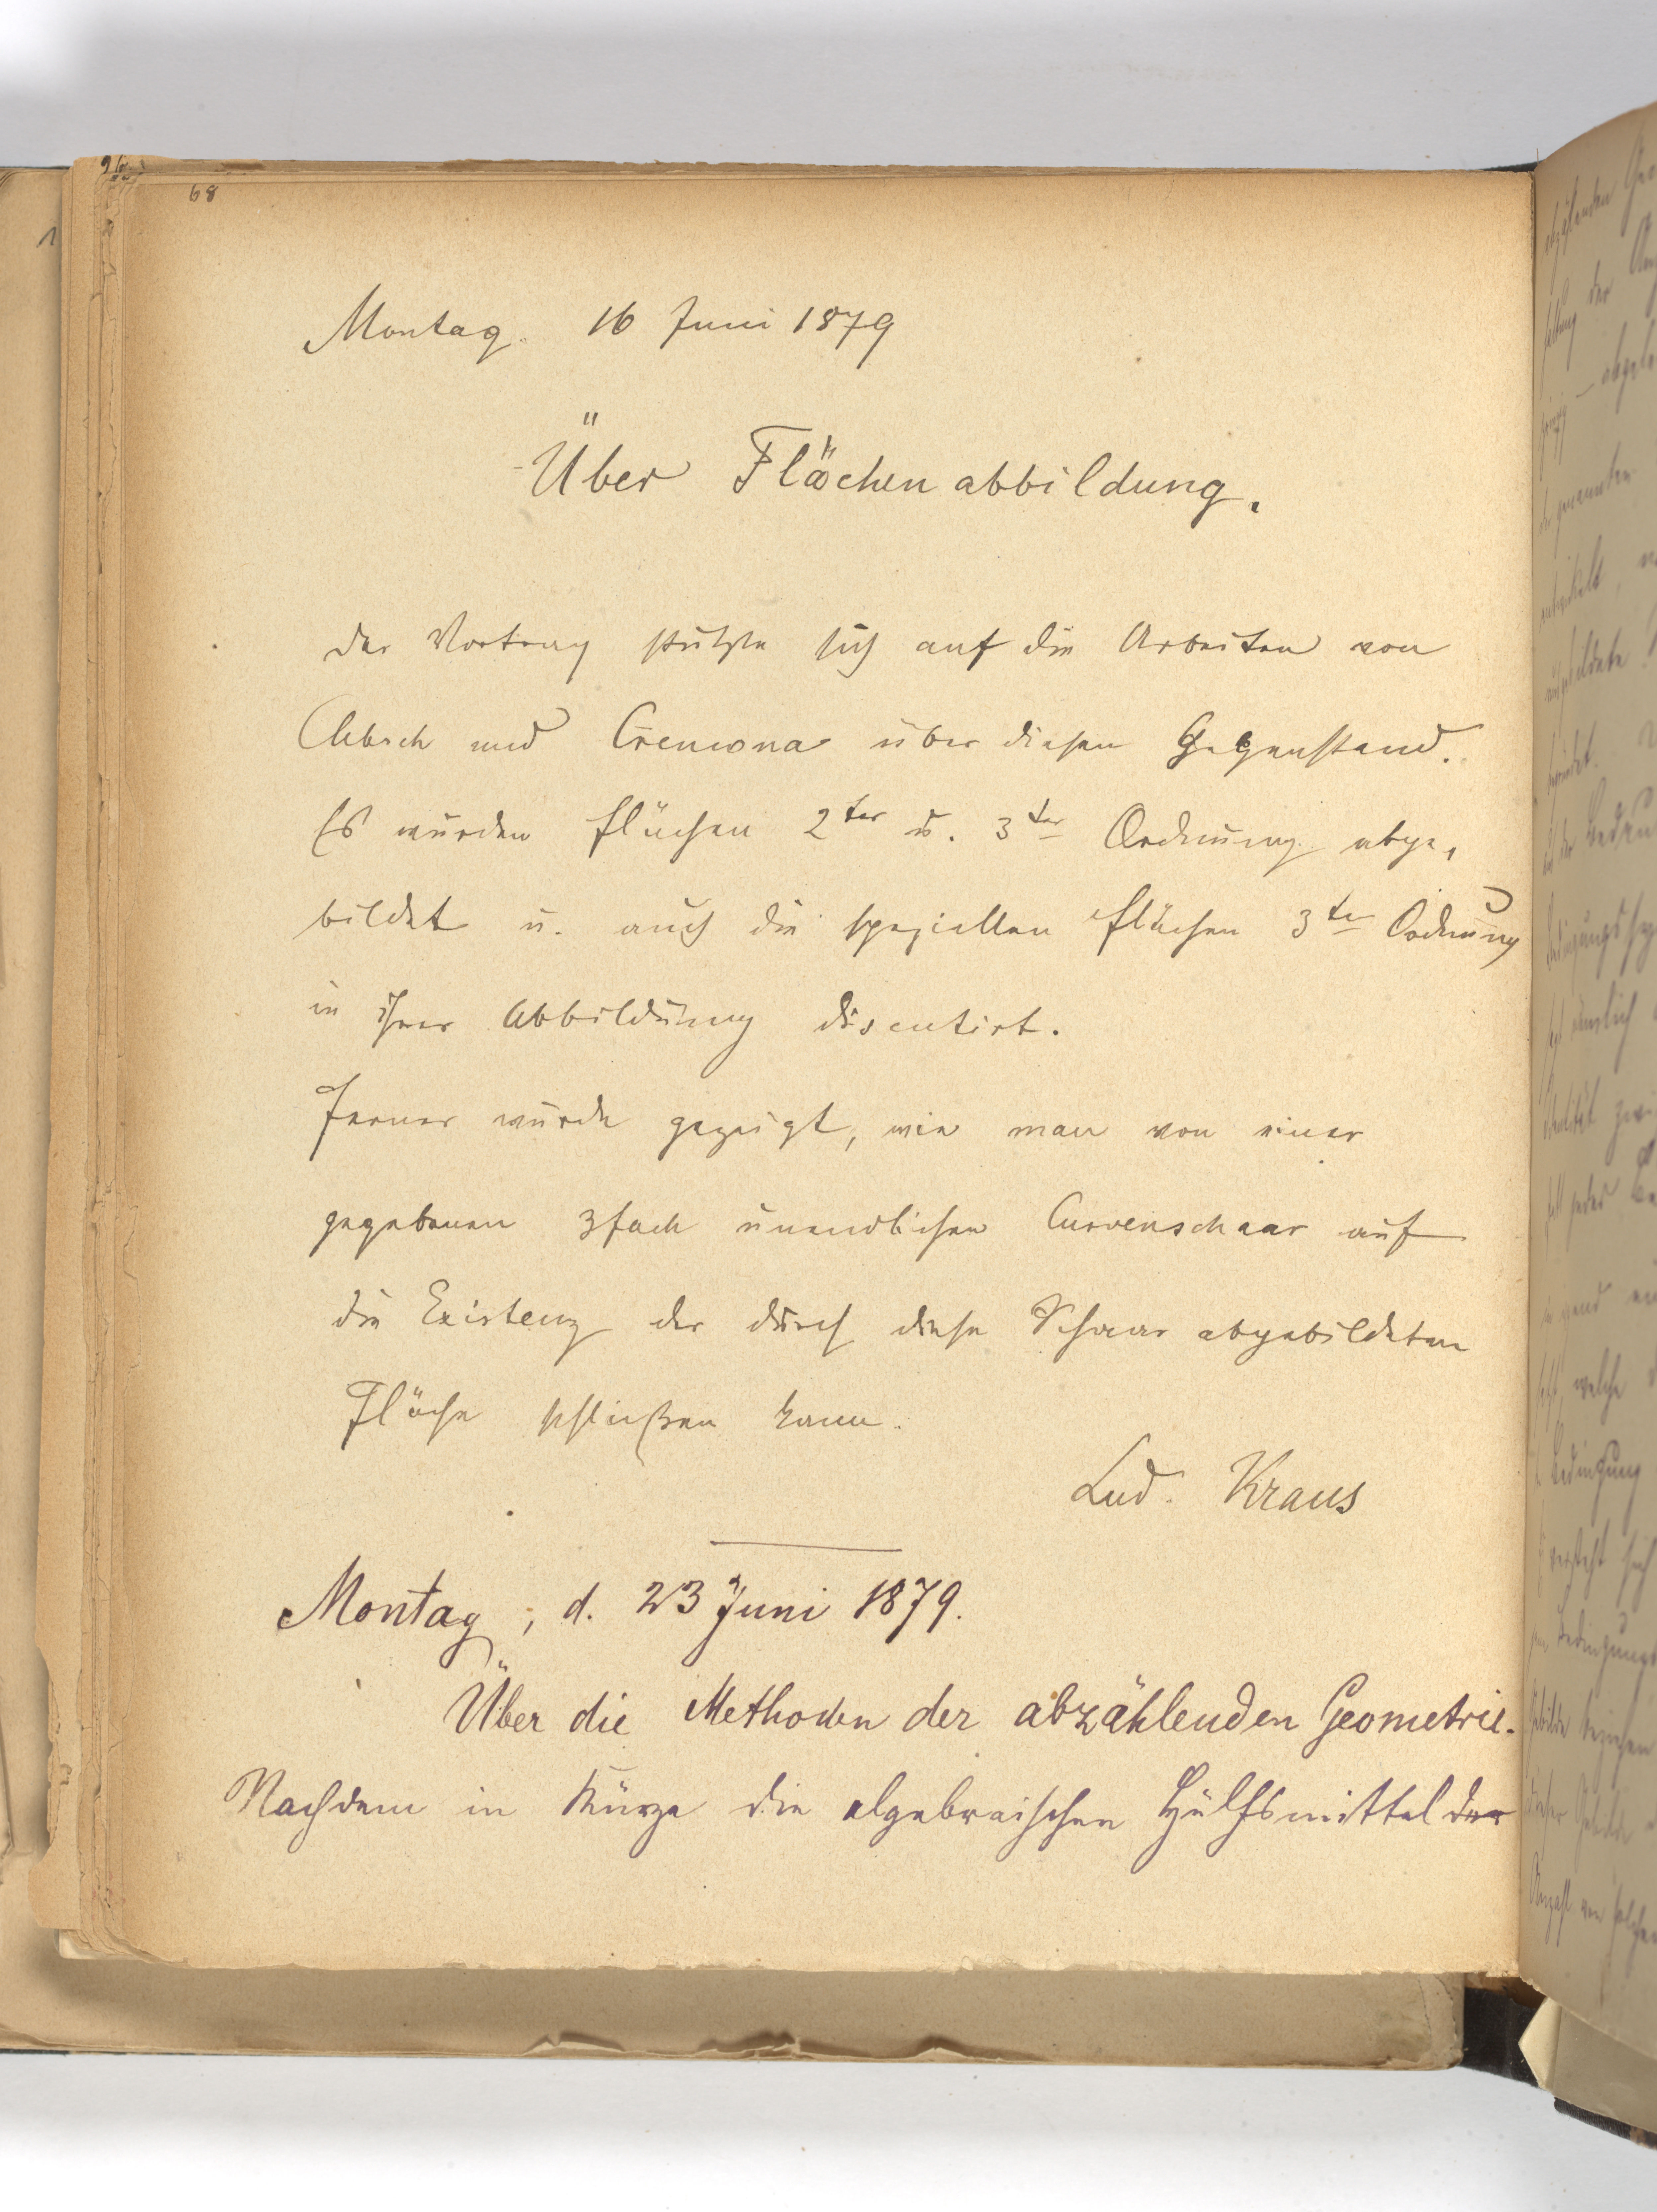 68
Montag. 16 Juni 1879
Über Flächenabbildung.
Der Vortrag stützte sich auf die Arbeiten von
Clebsch und Cremona über diesen Gegenstand.
Es wurden Flächen 2ter u. 3ter Ordnung abge-
bildet u. auch die speziellen Flächen 3ter Ordnung
in ihrer Abbildung discutirt.
Ferner wurde gezeigt, wie man von einer
gegebenen 3fach unendlichen Curvenschaar auf
die Existenz der durch diese Schaar abgebildeten
Fläche schließen kann.
Lud. Kraus
Montag, d. 23 Juni 1879.
Über die Methoden der abzählenden Geometrie.
Nachdem in Kürze die algebraischen Hülfsmittel der